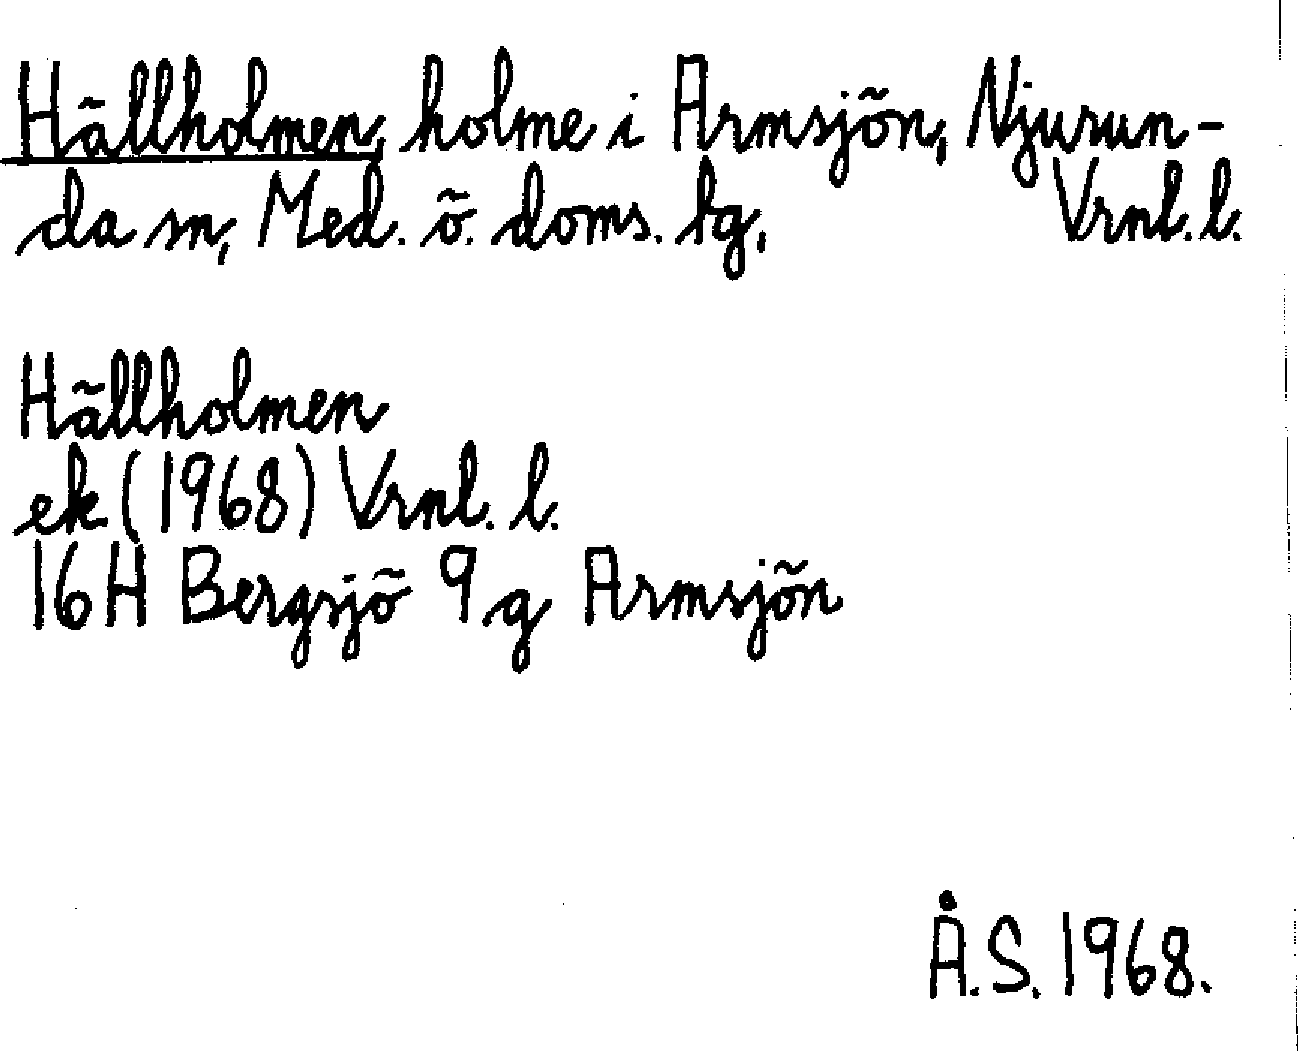 Hällholmen, holme i Armsjön, Njurun-
da sn, Med. ö. doms. tg, Vrnl. l.
Hällholmen
ek (1968) Vrnl. l.
16H Bergsjö 9g Armsjön
Å.S. 1968.